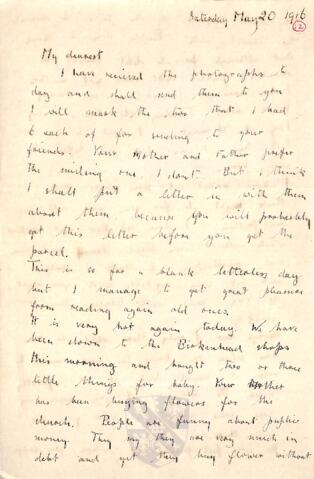 Saturday May 20 1916
12
My dearest
I have received the photographs to
day and shall send them to you
I will mark the two that I had
6 each of for sending to your
friends. Your Mother and Father prefer
the smiling one. I don't. But I think
I shall put a letter in with them
about them, because you will probably
get this letter before you get the
parcel.
This is so far a blank letterless day
but I manage to get great pleasure
from reading again old ones.
It is very hot again today. We have
been down to the Birkenhead shops
this morning and bought two or three
little things for baby. Your Mother
has been buying flowers for the
church. People are funny about public
money. They say they are very much in
debt and yet they buy flowers without